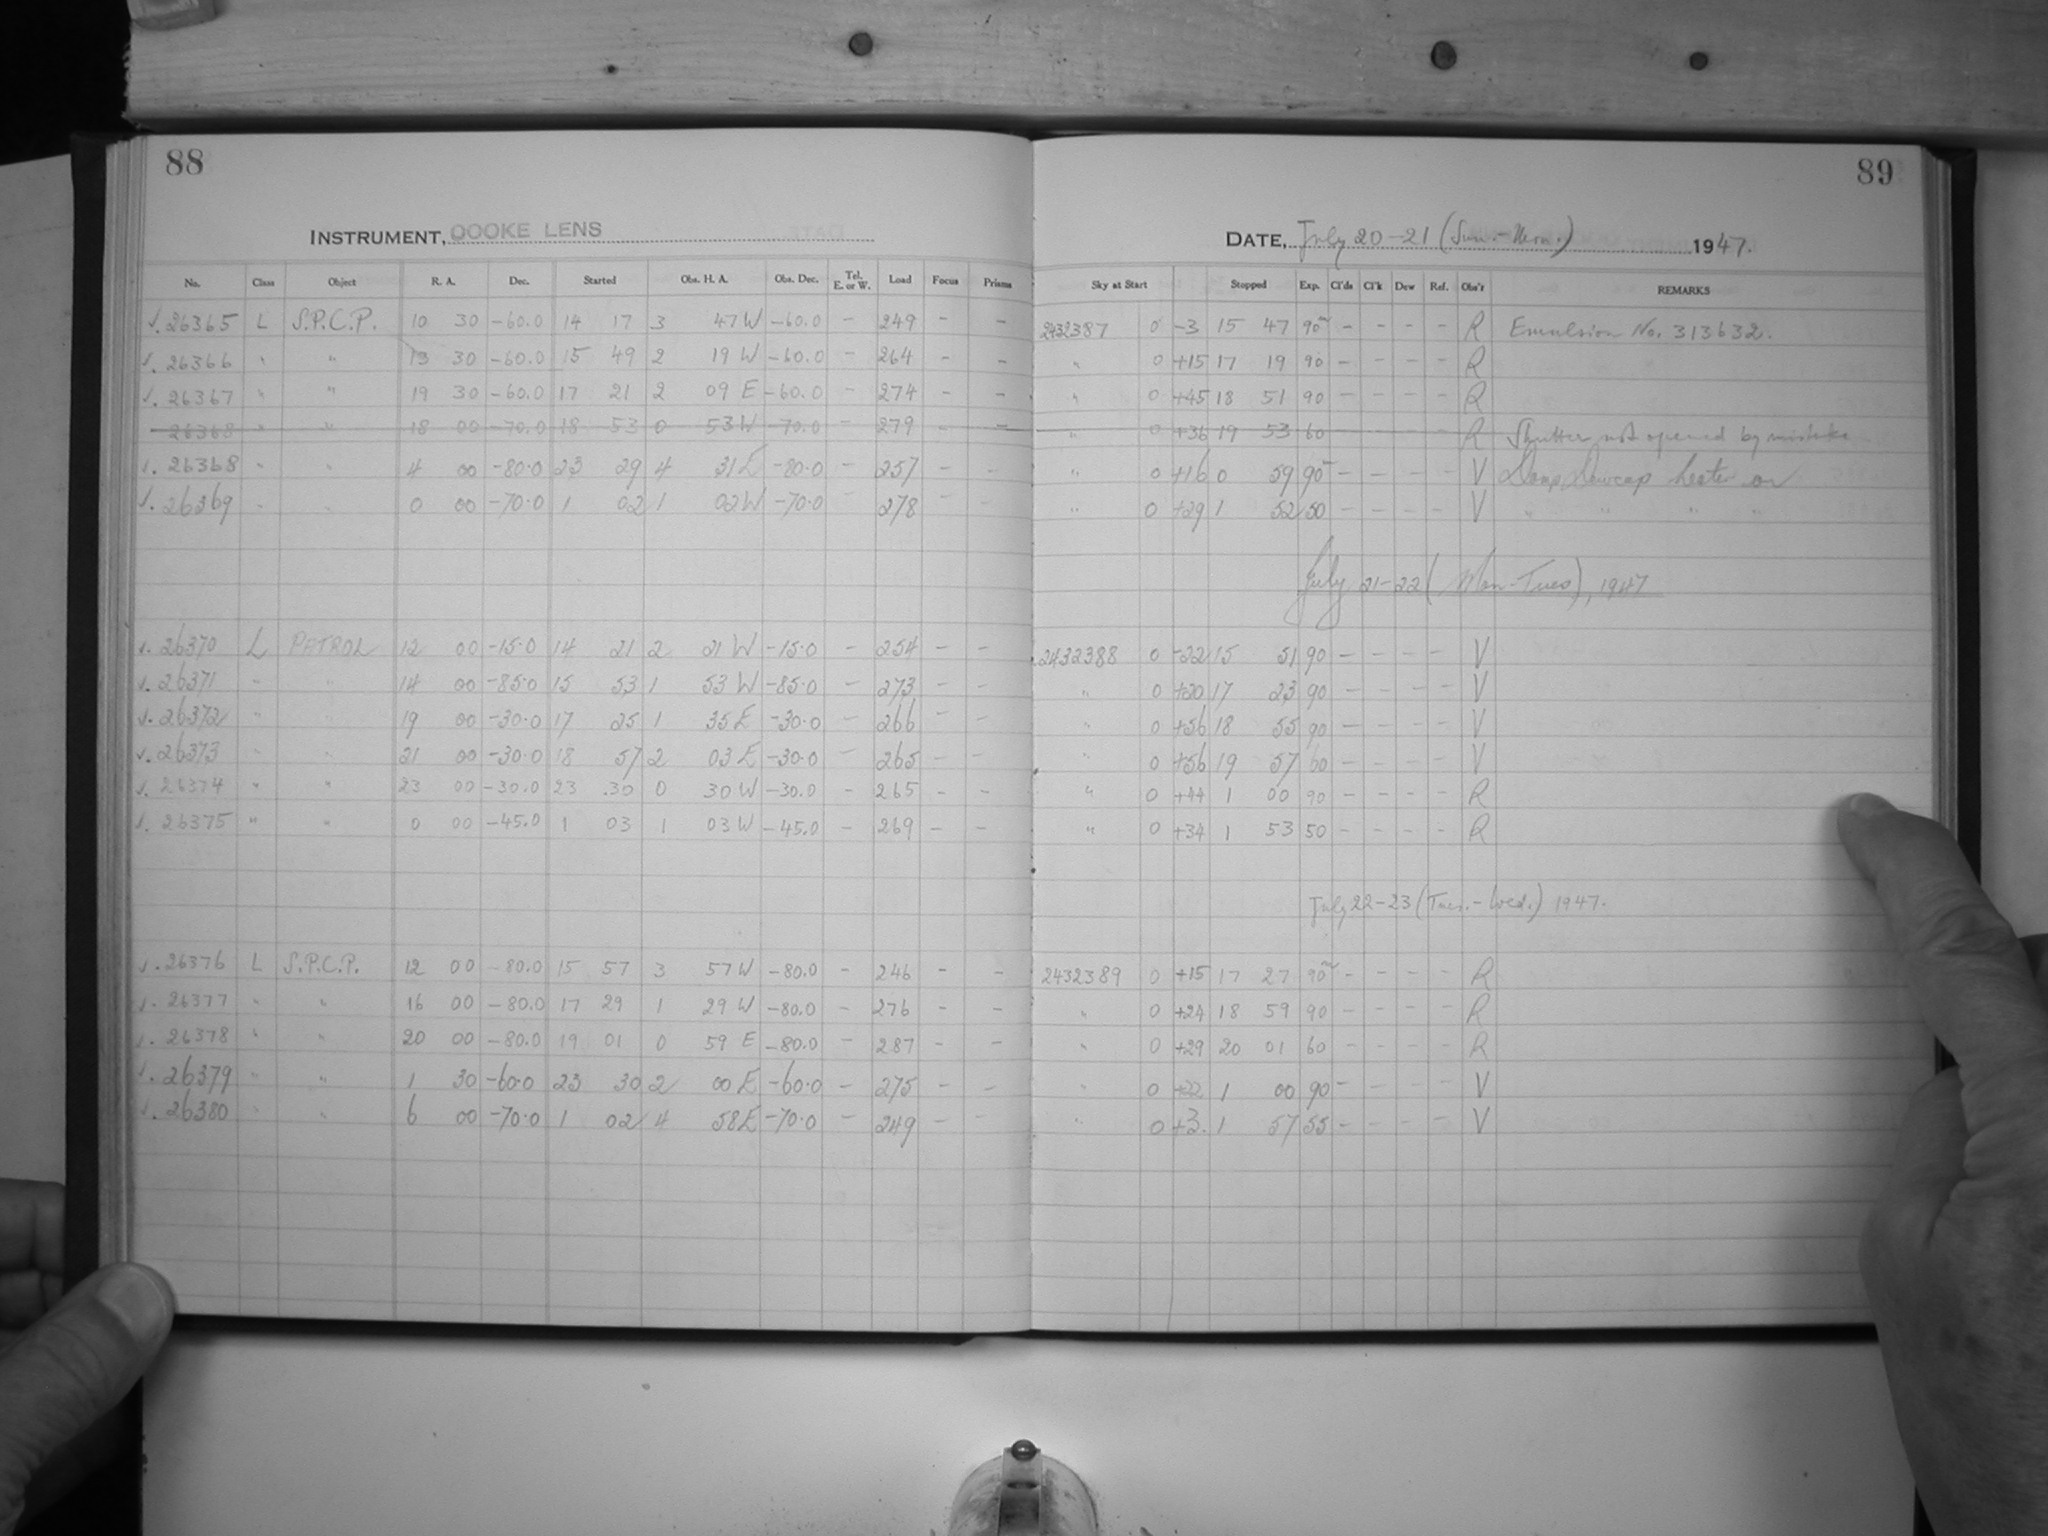 88
89
INSTRUMENT, COOKE LENS
DATE, July 20-21 (Sun.-Mon.) 1947.
No. Class Object R. A. Dec. Started Obs. H. A. Obs. Dec. Tel. E. or W. Load Focus Prisms Sky at Start Stopped Exp. Cl'ds Cl'k Dew Ref. Obs'r REMARKS
√. 26365 L S.P.C.P. 10 30 -60.0 14 17 3 47 W -60.0 - 249 - - 2432387 0 -3 15 47 90m - - - - R Emulsion No. 313632.
√. 26366 " " 13 30 -60.0 15 49 2 19 W -60.0 - 264 - - " 0 +15 17 19 90 - - - - R
√. 26367 " " 19 30 -60.0 17 21 2 09 E -60.0 - 274 - - " 0 +45 18 51 90 - - - - R
26368 " " 18 00 -70.0 18 53 0 53 W -70.0 - 279 - - " 0 +36 19 53 60 - - - - R Shutter not opened by mistake
√. 26368 " " 4 00 -80.0 23 29 4 31 E -80.0 - 257 - - " 0 +16 0 59 90m - - - - V Damp Dewcap heater on
√. 26369 " " 0 00 -70.0 1 02 1 02 W -70.0 - 278 - - " 0 +29 1 52 50 - - - - V " " " "
July 21-22 (Mon-Tues), 1947
√. 26370 L PATROL 12 00 -15.0 14 21 2 21 W -15.0 - 254 - - 2432388 0 -22 15 51 90 - - - - V
√. 26371 " " 14 00 -85.0 15 53 1 53 W -85.0 - 273 - - " 0 +20 17 23 90 - - - - V
√. 26372 " " 19 00 -30.0 17 25 1 35 E -30.0 - 266 - - " 0 +56 18 55 90 - - - - V
√. 26373 " " 21 00 -30.0 18 57 2 03 E -30.0 - 265 - - " 0 +56 19 57 60 - - - - V
√. 26374 " " 23 00 -30.0 23 30 0 30 W -30.0 - 265 - - " 0 +44 1 00 90 - - - - R
√. 26375 " " 0 00 -45.0 1 03 1 03 W -45.0 - 269 - - " 0 +34 1 53 50 - - - - R
July 22-23 (Tues.-Wed.) 1947.
√. 26376 L S.P.C.P. 12 00 -80.0 15 57 3 57 W -80.0 - 246 - - 2432389 0 +15 17 27 90m - - - - R
√. 26377 " " 16 00 -80.0 17 29 1 29 W -80.0 - 276 - - " 0 +24 18 59 90 - - - - R
√. 26378 " " 20 00 -80.0 19 01 0 59 E -80.0 - 287 - - " 0 +29 20 01 60 - - - - R
√. 26379 " " 1 30 -60.0 23 30 2 00 E -60.0 - 275 - - " 0 +22 1 00 90 - - - - V
√. 26380 " " 6 00 -70.0 1 02 4 58 E -70.0 - 249 - - " 0 +3. 1 57 55 - - - - V